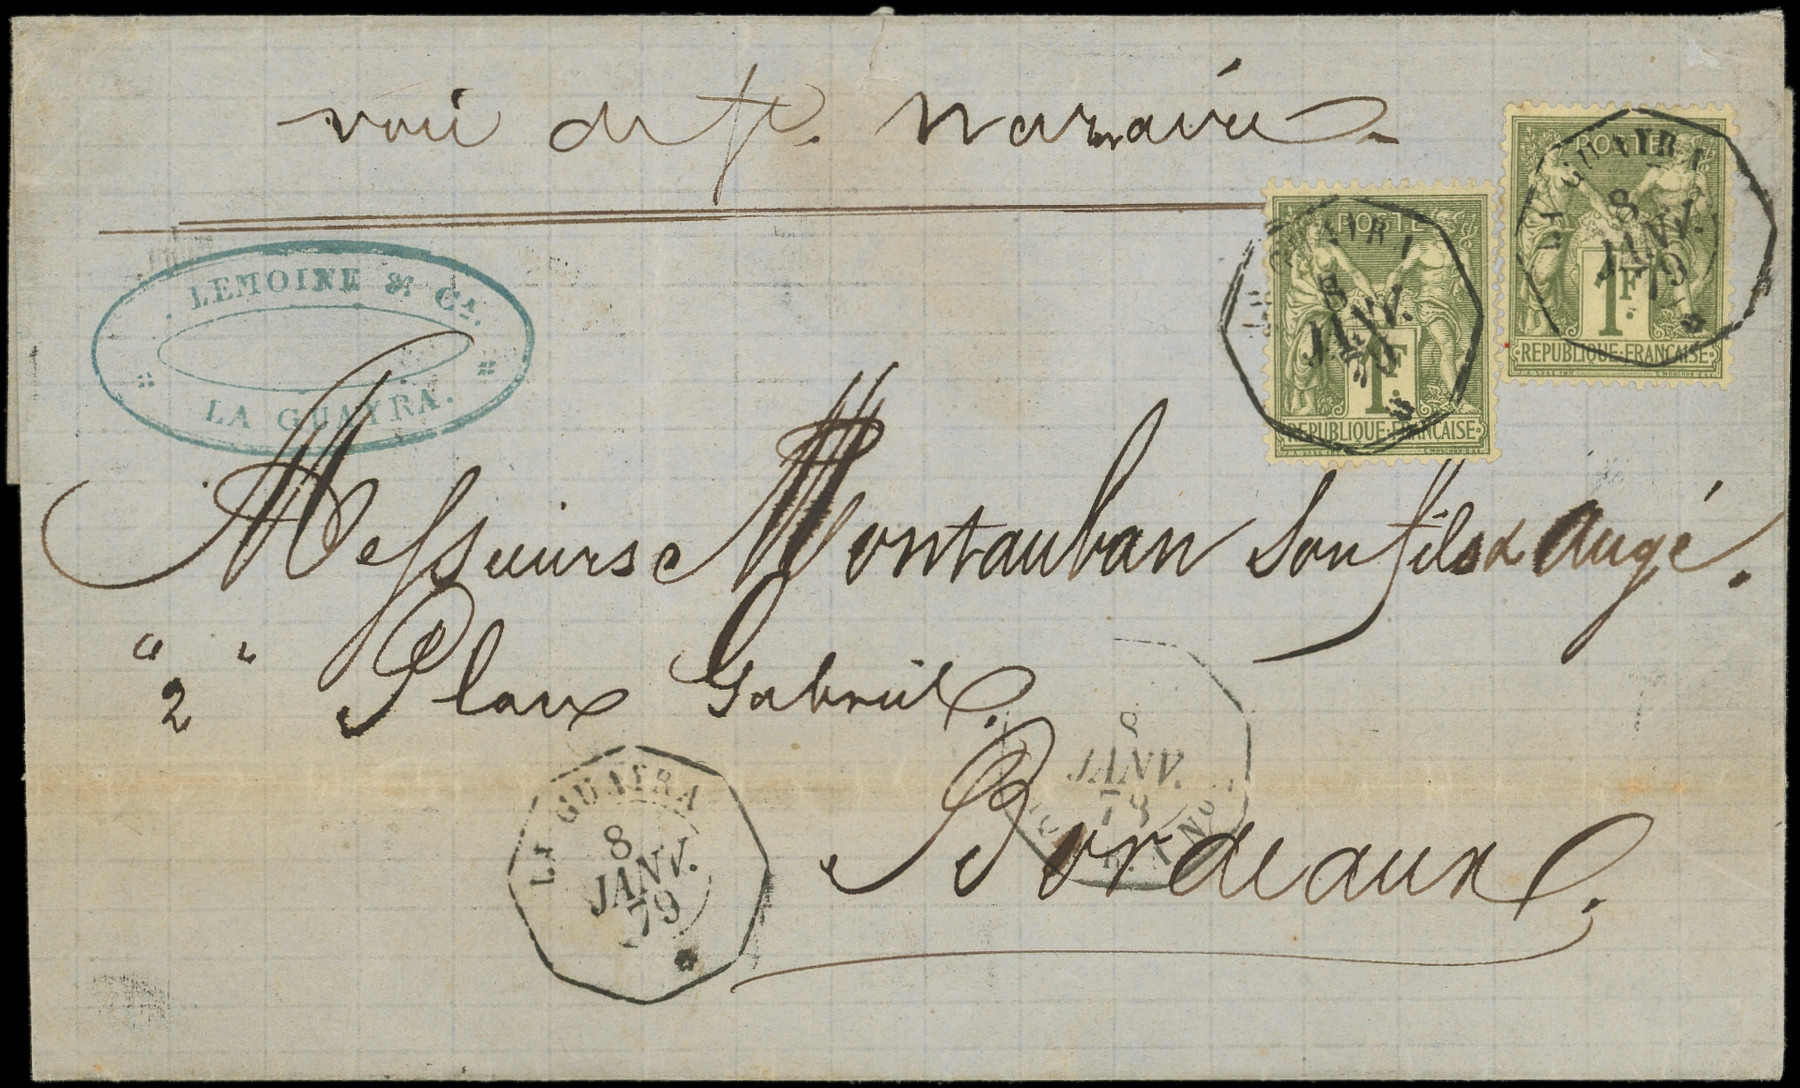 voie de St. Nazaire
LEMOINE & Ca.
LA GUAYRA.
POSTE
1F
REPUBLIQUE FRANÇAISE
LA GUAYRA
8
JANV.
79
POSTE
1F.
REPUBLIQUE FRANÇAISE
LA GUAYRA
8
JANV.
79
Messieurs Montauban Son fils & Augé.
"2" Place Gabriel.
Bordeaux.
LA GUAYRA
8
JANV.
79
JANV.